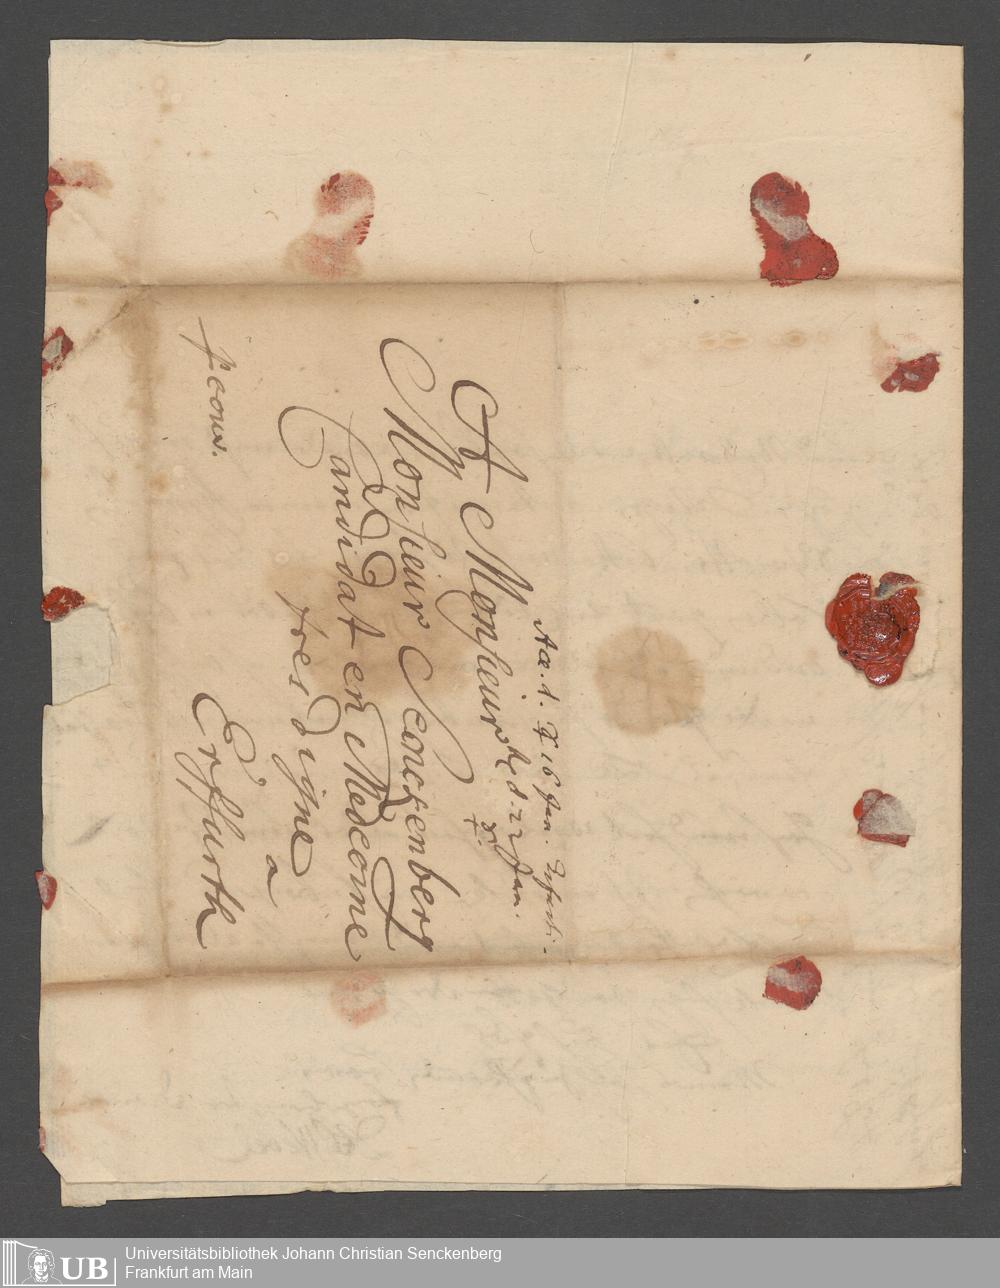 Acc. d. 16 Jan.
d. 22 Jan.
A Monsieur
Monsieur Senckenberg
Candidat en Medecine
tres digne
a
Erffurth
fcouv.
UB
Universitätsbibliothek Johann Christian Senckenberg
Frankfurt am Main